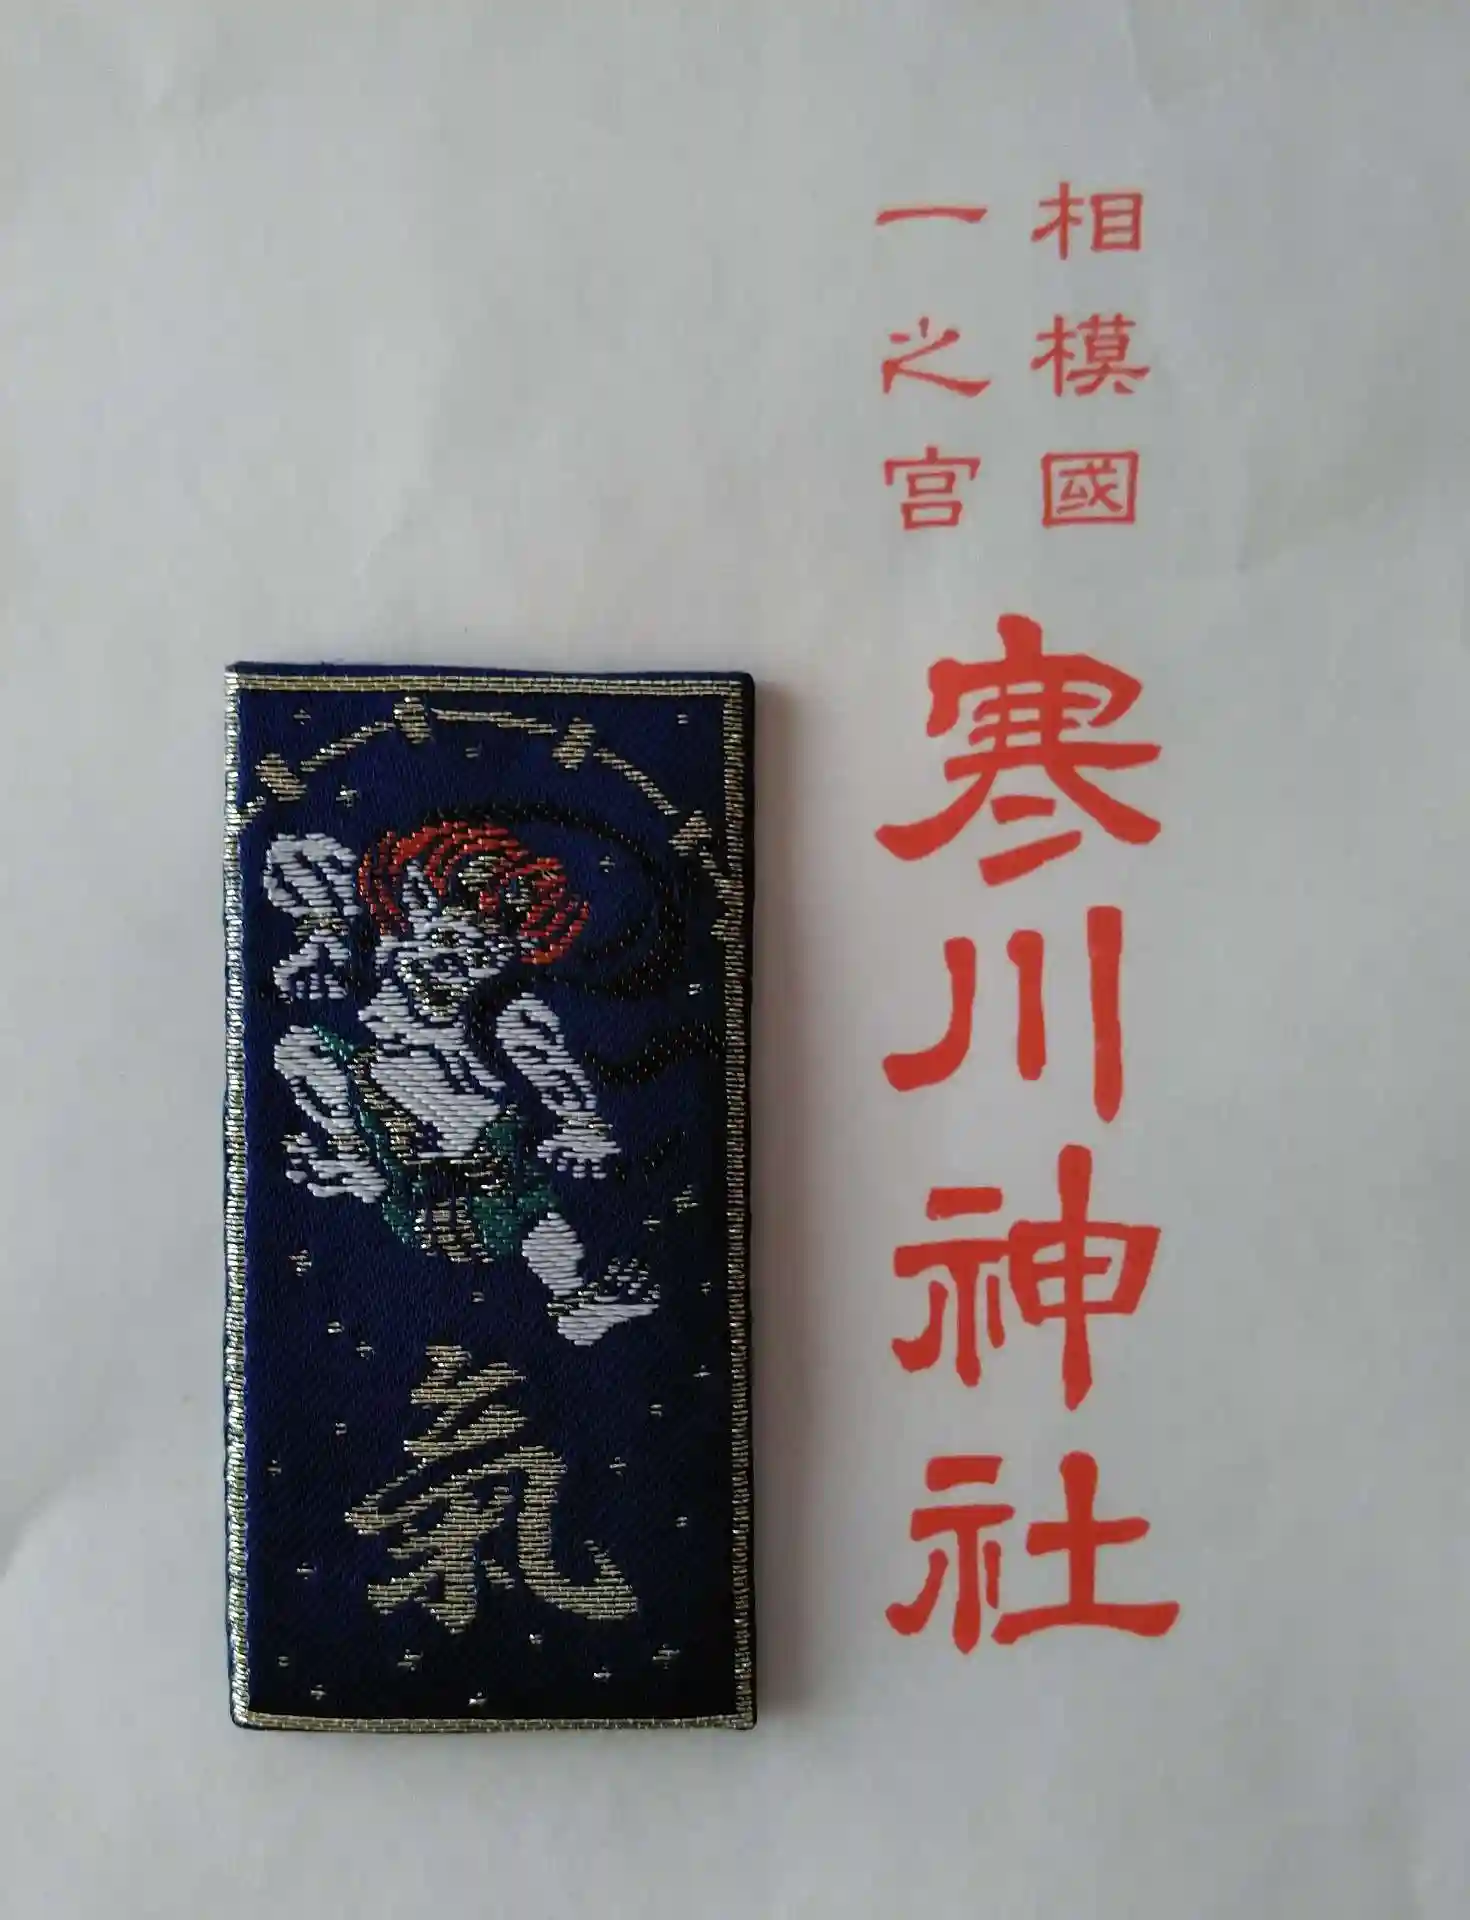 相模國
一之宮
寒川神社
氣